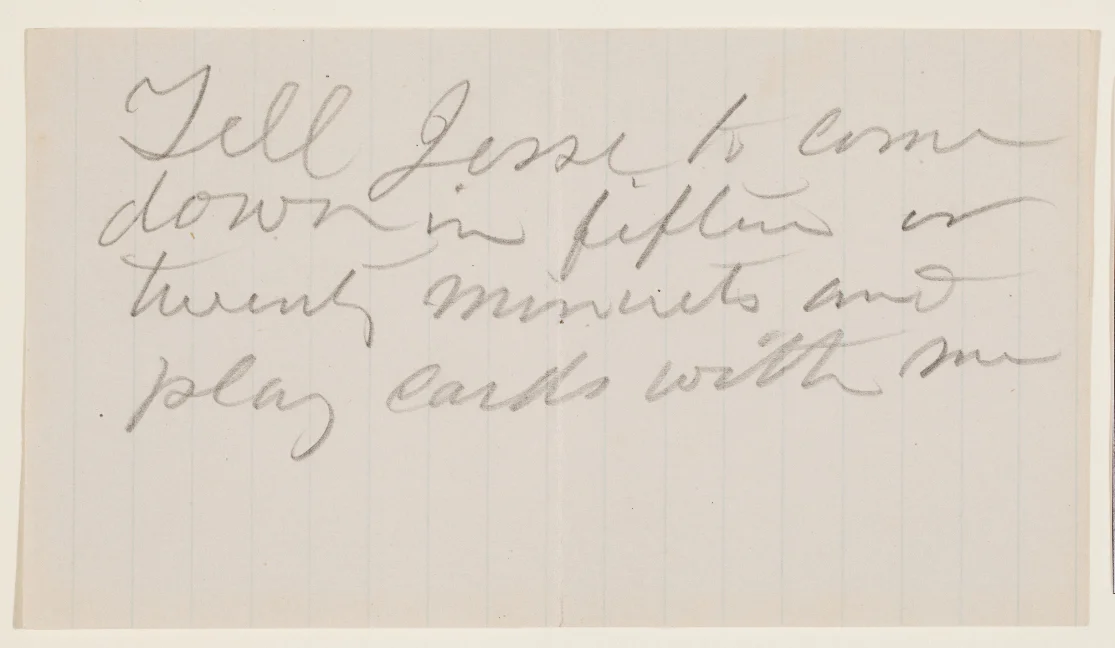 Tell Jesse to come
down in fifteen or
twenty minuets and
play cards with me